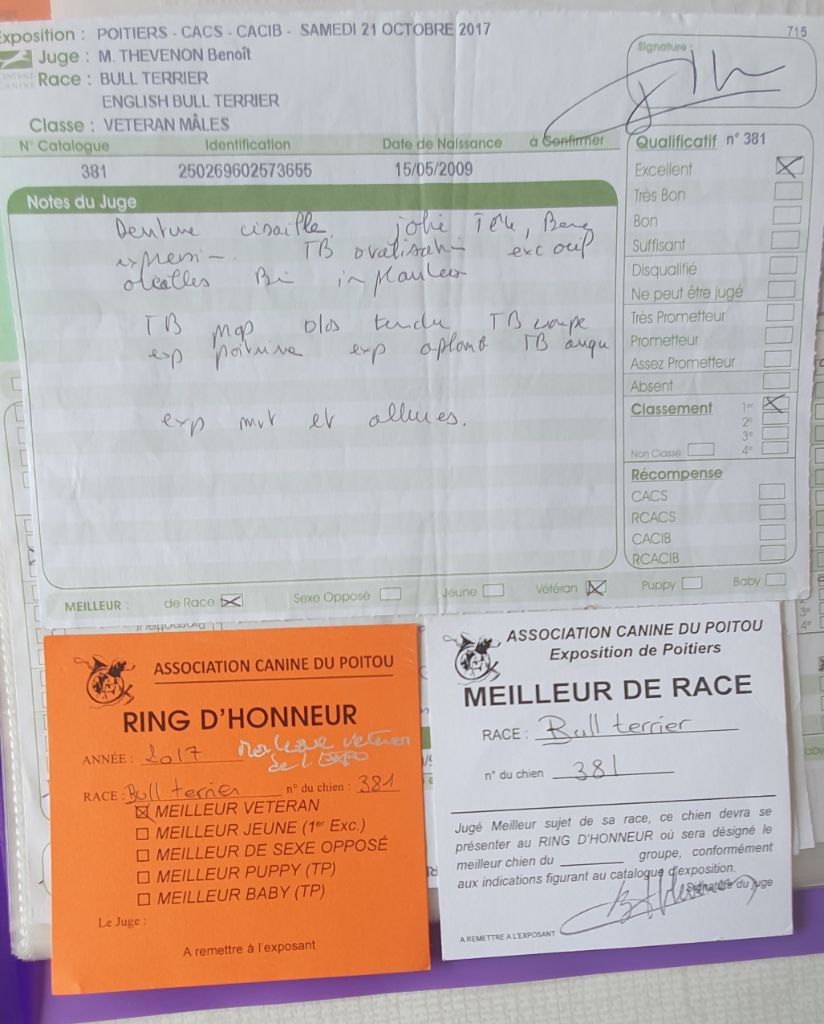 Exposition : POITIERS - CACS - CACIB - SAMEDI 21 OCTOBRE 2017
715
Juge : M. THEVENON Benoît
CENTRALE CANINE
Race : BULL TERRIER
ENGLISH BULL TERRIER
Classe : VETERAN MÂLES
Signature :
N° Catalogue Identification Date de Naissance à Confirmer
381 250269602573655 15/05/2009
Notes du Juge
Denture cisaille. jolie Tête, Bene
expressi-. TB ovalisati- exc oeif
oreilles Bi implantees
TB mqp dos tendu TB coupe
exp poitrine exp aplomb TB angu
exp mvt et allures.
Qualificatif n° 381
Excellent
Très Bon
Bon
Suffisant
Disqualifié
Ne peut être jugé
Très Prometteur
Prometteur
Assez Prometteur
Absent
Classement 1er
2e
3e
Non Classé 4e
Récompense
CACS
RCACS
CACIB
RCACIB
MEILLEUR : de Race Sexe Opposé Jeune Vétéran Puppy Baby
ASSOCIATION CANINE DU POITOU
RING D'HONNEUR
ANNÉE : 2017 Meilleur veteran
de l'EXPO
RACE : Bull terrier n° du chien : 381
MEILLEUR VETERAN
MEILLEUR JEUNE (1er Exc.)
MEILLEUR DE SEXE OPPOSÉ
MEILLEUR PUPPY (TP)
MEILLEUR BABY (TP)
Le Juge :
A remettre à l'exposant
ASSOCIATION CANINE DU POITOU
Exposition de Poitiers
MEILLEUR DE RACE
RACE : Bull terrier
n° du chien 381
Jugé Meilleur sujet de sa race, ce chien devra se
présenter au RING D'HONNEUR où sera désigné le
meilleur chien du ________ groupe, conformément
aux indications figurant au catalogue d'exposition.
Signature du juge
A REMETTRE A L'EXPOSANT